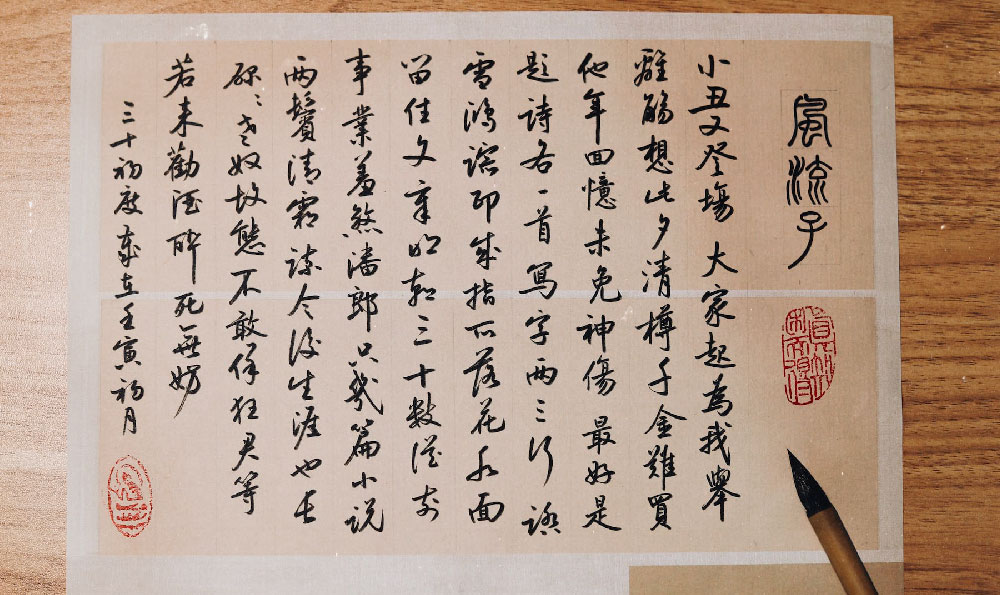 風流子
小丑又登場 大家起為我舉
離觴想此夕清樽千金難買
他年回憶未免神傷 最好是
題詩各一首寫字兩三行 踏
雪鴻蹤印成指爪落花水面
留住文章明朝三十數從前
事業羞煞潘郎只幾篇小説
兩鬢清霜諒今後生涯也長
碌〻老奴故態不敢佯狂君等
若来勸酒醉死無妨
三十初度歲在壬寅初月